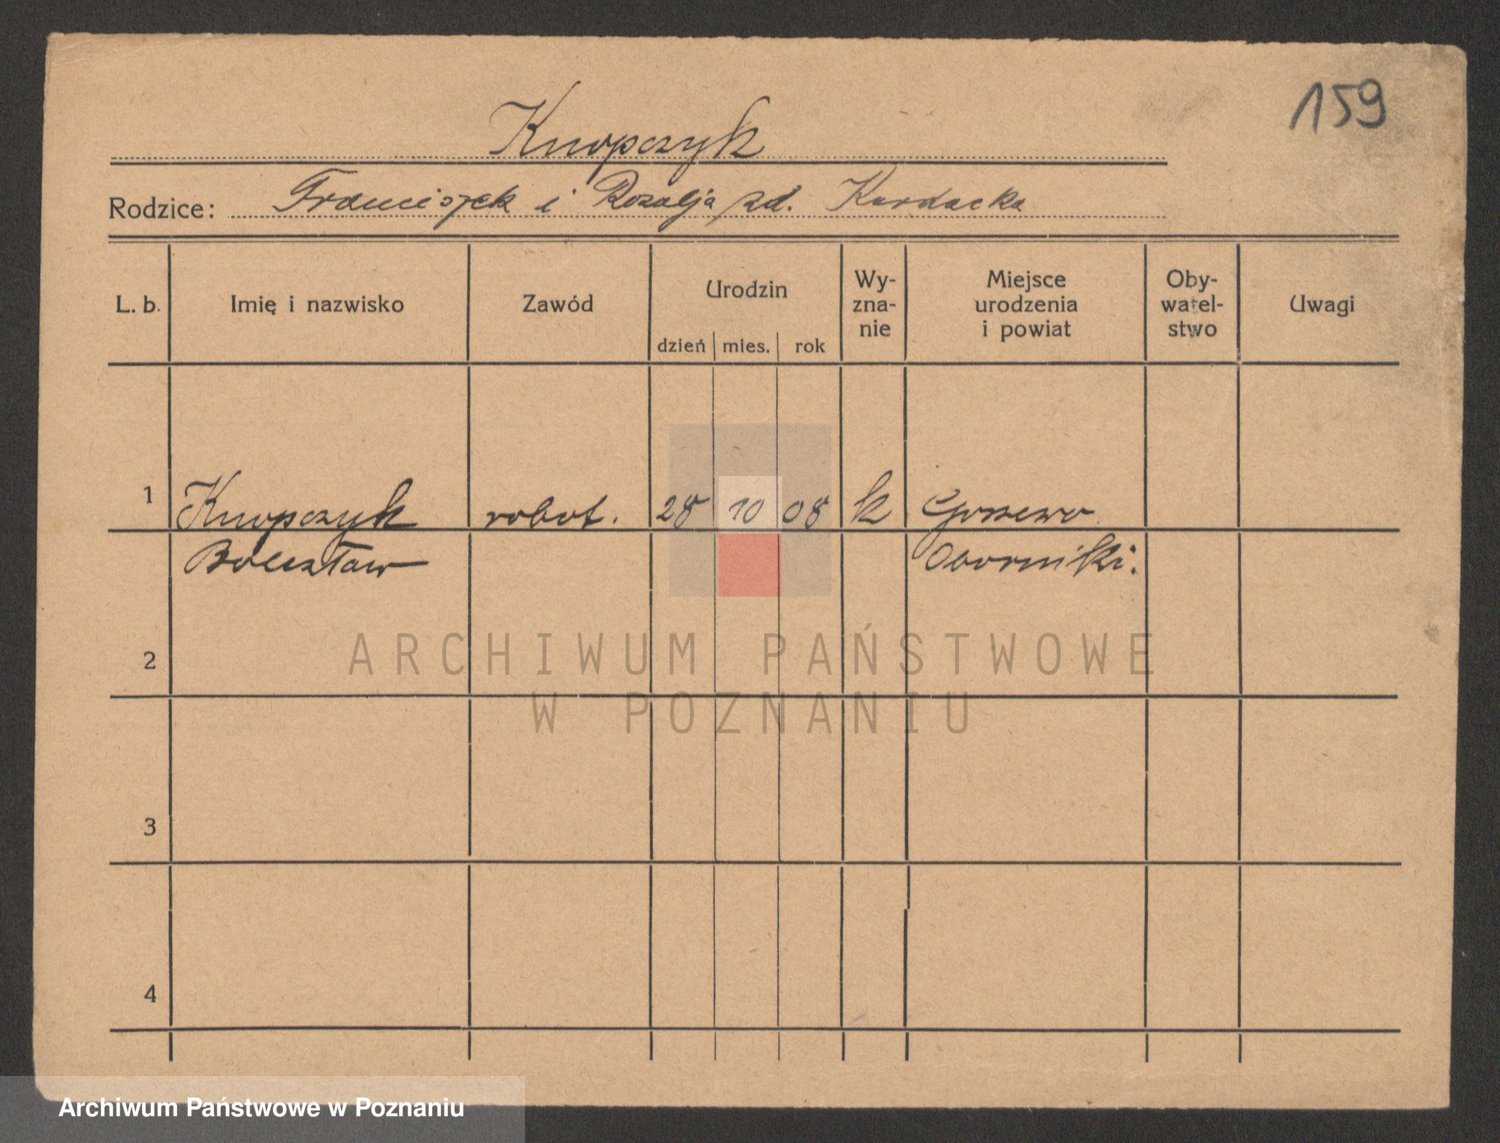 159
Knopczyk
Rodzice: Franciszek i Rozalja zd. Kardacka
L. b.
Imię i nazwisko
Zawód
Urodzin
dzień mies. rok
Wy-
zna-
nie
Miejsce
urodzenia
i powiat
Oby-
watel-
stwo
Uwagi
1 Knopczyk robot. 28 10 08 k Gorzewo
Bolesław Oborniki.
2
ARCHIWUM PAŃSTWOWE
W POZNANIU
3
4
Archiwum Państwowe w Poznaniu